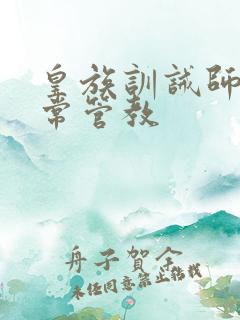 皇族訓誡師
常管教
舟子賀念
未任同意禁止转载